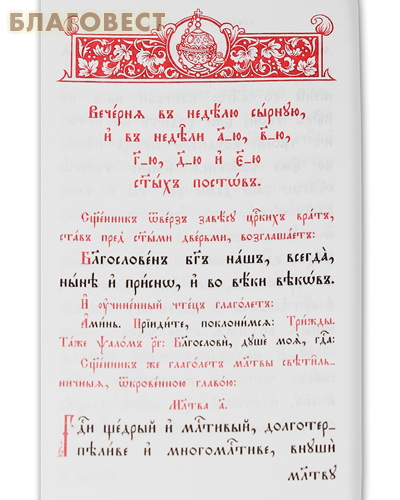 БЛАГОВЕСТ
Вече́рнѧ въ недѣ́лю сы́рную,
и҆ въ недѣ́ли а҃-ю, в҃-ю,
г҃-ю, д҃-ю и҆ є҃-ю
ст҃ы́хъ посто́въ.
Сщ҃е́нникъ ѿве́рзъ завѣ́су цр҃кихъ вра́тъ,
ста́въ пред̾ ст҃ы́ми две́рьми, возглаша́етъ:
Бл҃гослове́нъ бг҃ъ на́шъ, всегда̀,
ны́нѣ и҆ при́снѡ, и҆ во вѣ́ки вѣкѡ́въ.
И҆ ᲂу҆чине́нный чте́цъ глаго́летъ:
А҆ми́нь. Прїиди́те, поклони́мсѧ: Три́жды.
Та́же ѱало́мъ рг҃: Бл҃гословѝ, душѐ моѧ̀, гдⷭ҇а:
Сщ҃е́нникъ же глаго́летъ мл҃твы свѣти́ль-
ничныѧ, ѿкрове́нною главо́ю:
Мл҃тва а҃.
Гдⷭ҇и ще́дрый и҆ млⷭ҇тивый, долготер-
пѣли́ве и҆ многомлⷭ҇тиве, внушѝ
мл҃тву